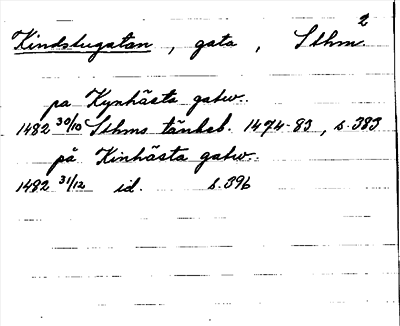 2
Kindstugatan, gata, Sthm
pa Kynhästa gatw..
1482 30/10 Sthms tänkeb. 1474-83, s. 383
på Kinhästa gatw..
1482 31/12 id. s. 396